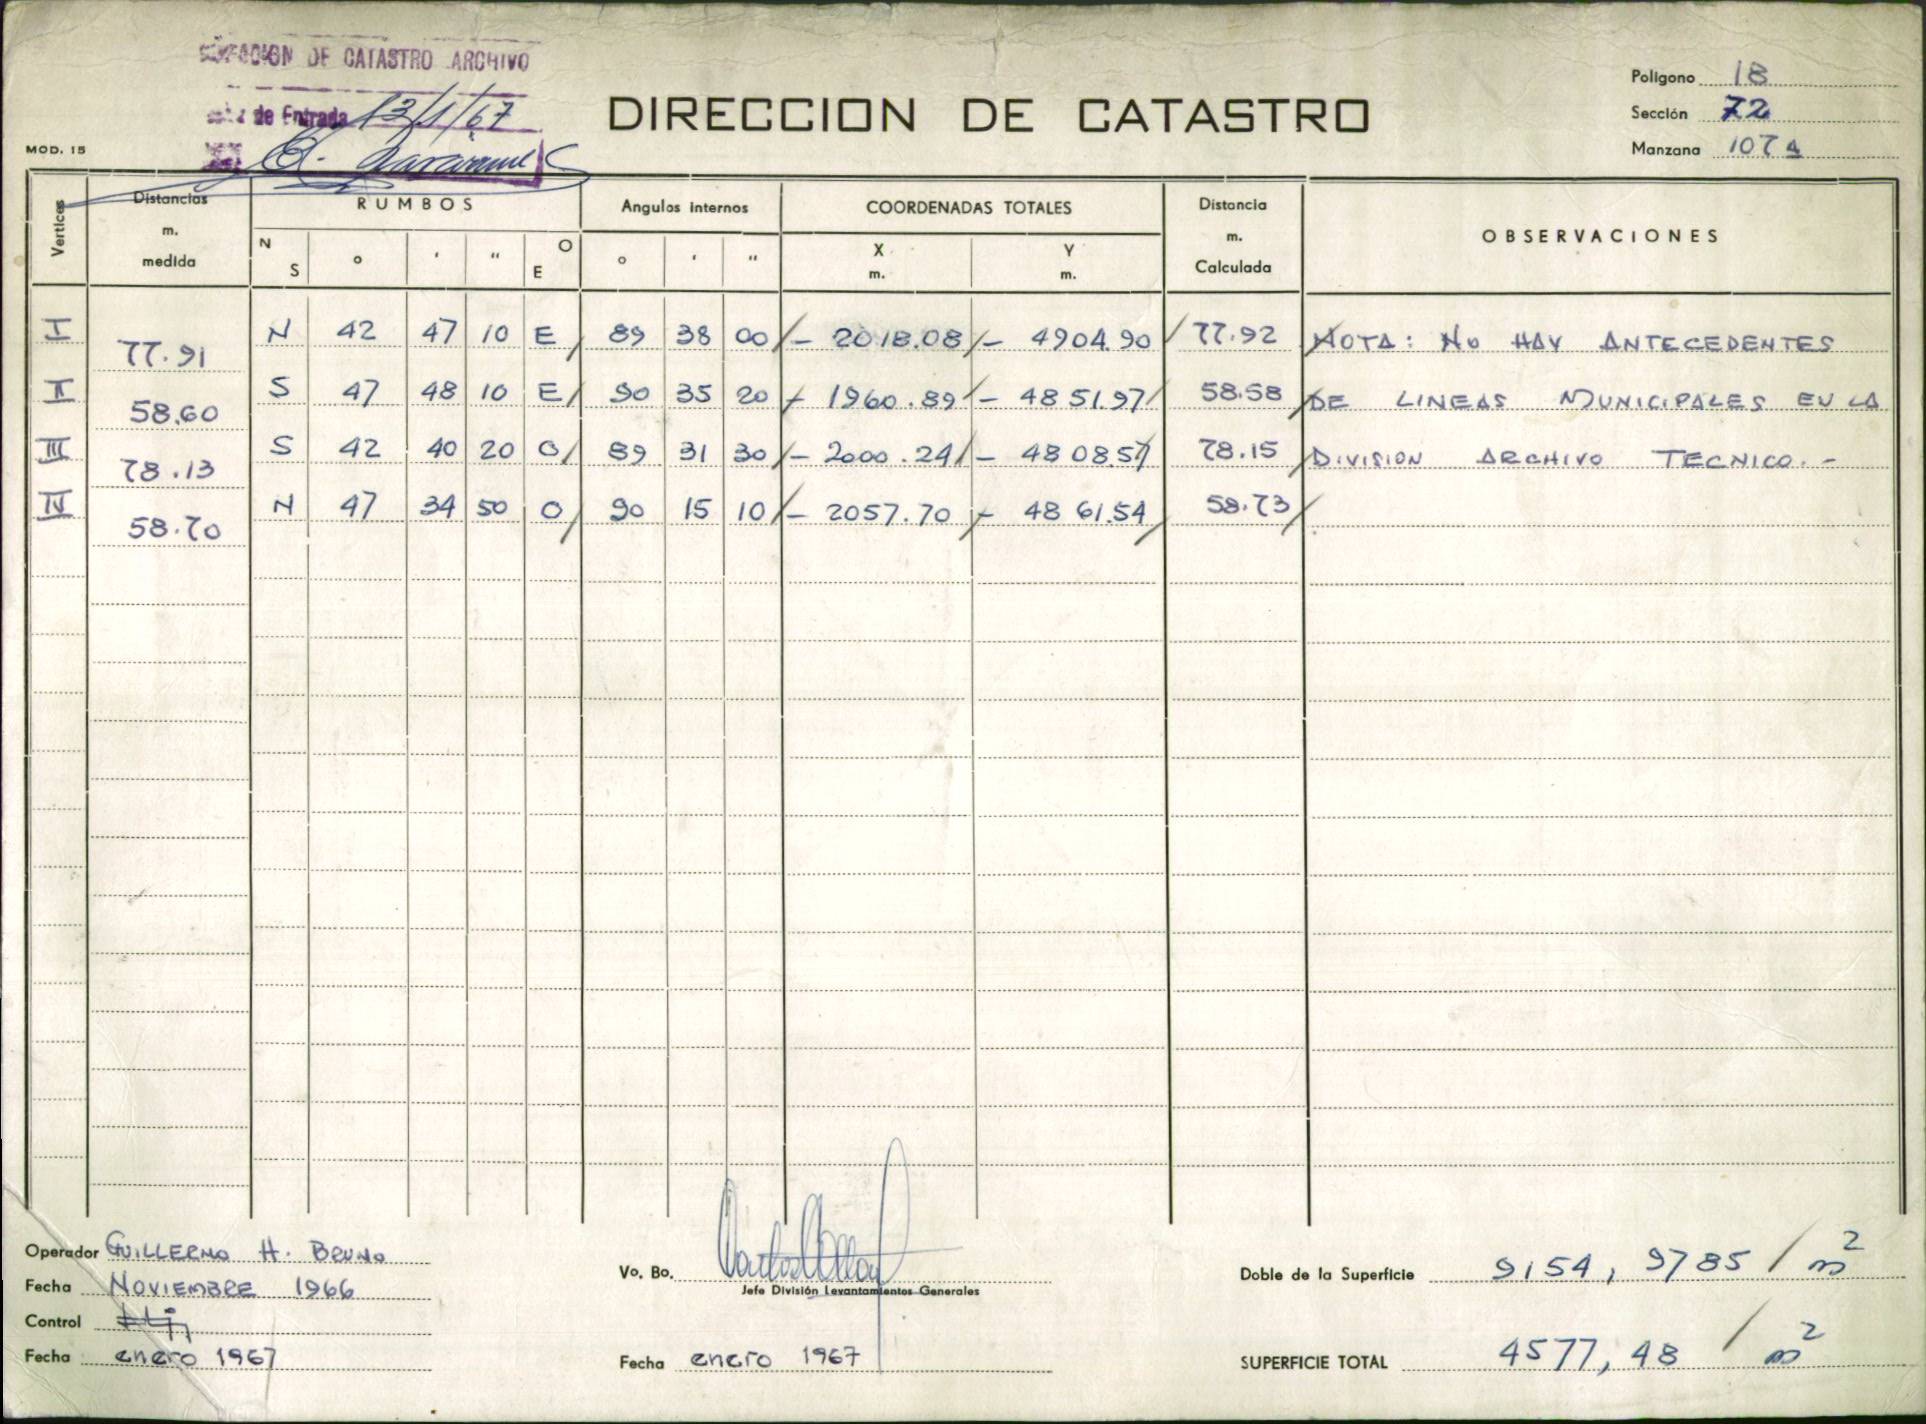 DE CATASTRO ARCHIVO
de Entrada 13/1/67
DIRECCION DE CATASTRO
Poligono 18
Sección 72
Manzana 107a
MOD. 15
Vertices
Distancias m. medida
RUMBOS
N S ° ' " O E
Angulos internos
° ' "
COORDENADAS TOTALES
X m. Y m.
Distancia m. Calculada
OBSERVACIONES
I 77.91 N 42 47 10 E 89 38 00 - 2018.08 - 4904.90 77.92 NOTA: NO HAY ANTECEDENTES
II 58.60 S 47 48 10 E 90 35 20 - 1960.89 - 4851.97 58.58 DE LINEAS MUNICIPALES EN LA
III 78.13 S 42 40 20 O 89 31 30 - 2000.24 - 4808.57 78.15 DIVISION ARCHIVO TECNICO.-
IV 58.70 N 47 34 50 O 90 15 10 - 2057.70 - 4861.54 58.73
Operador GUILLERMO H. BRUNO
Fecha NOVIEMBRE 1966
Control
Fecha enero 1967
Vo. Bo.
Jefe División Levantamientos Generales
Fecha enero 1967
Doble de la Superficie 9154,9785 / m2
SUPERFICIE TOTAL 4577,48 / m2